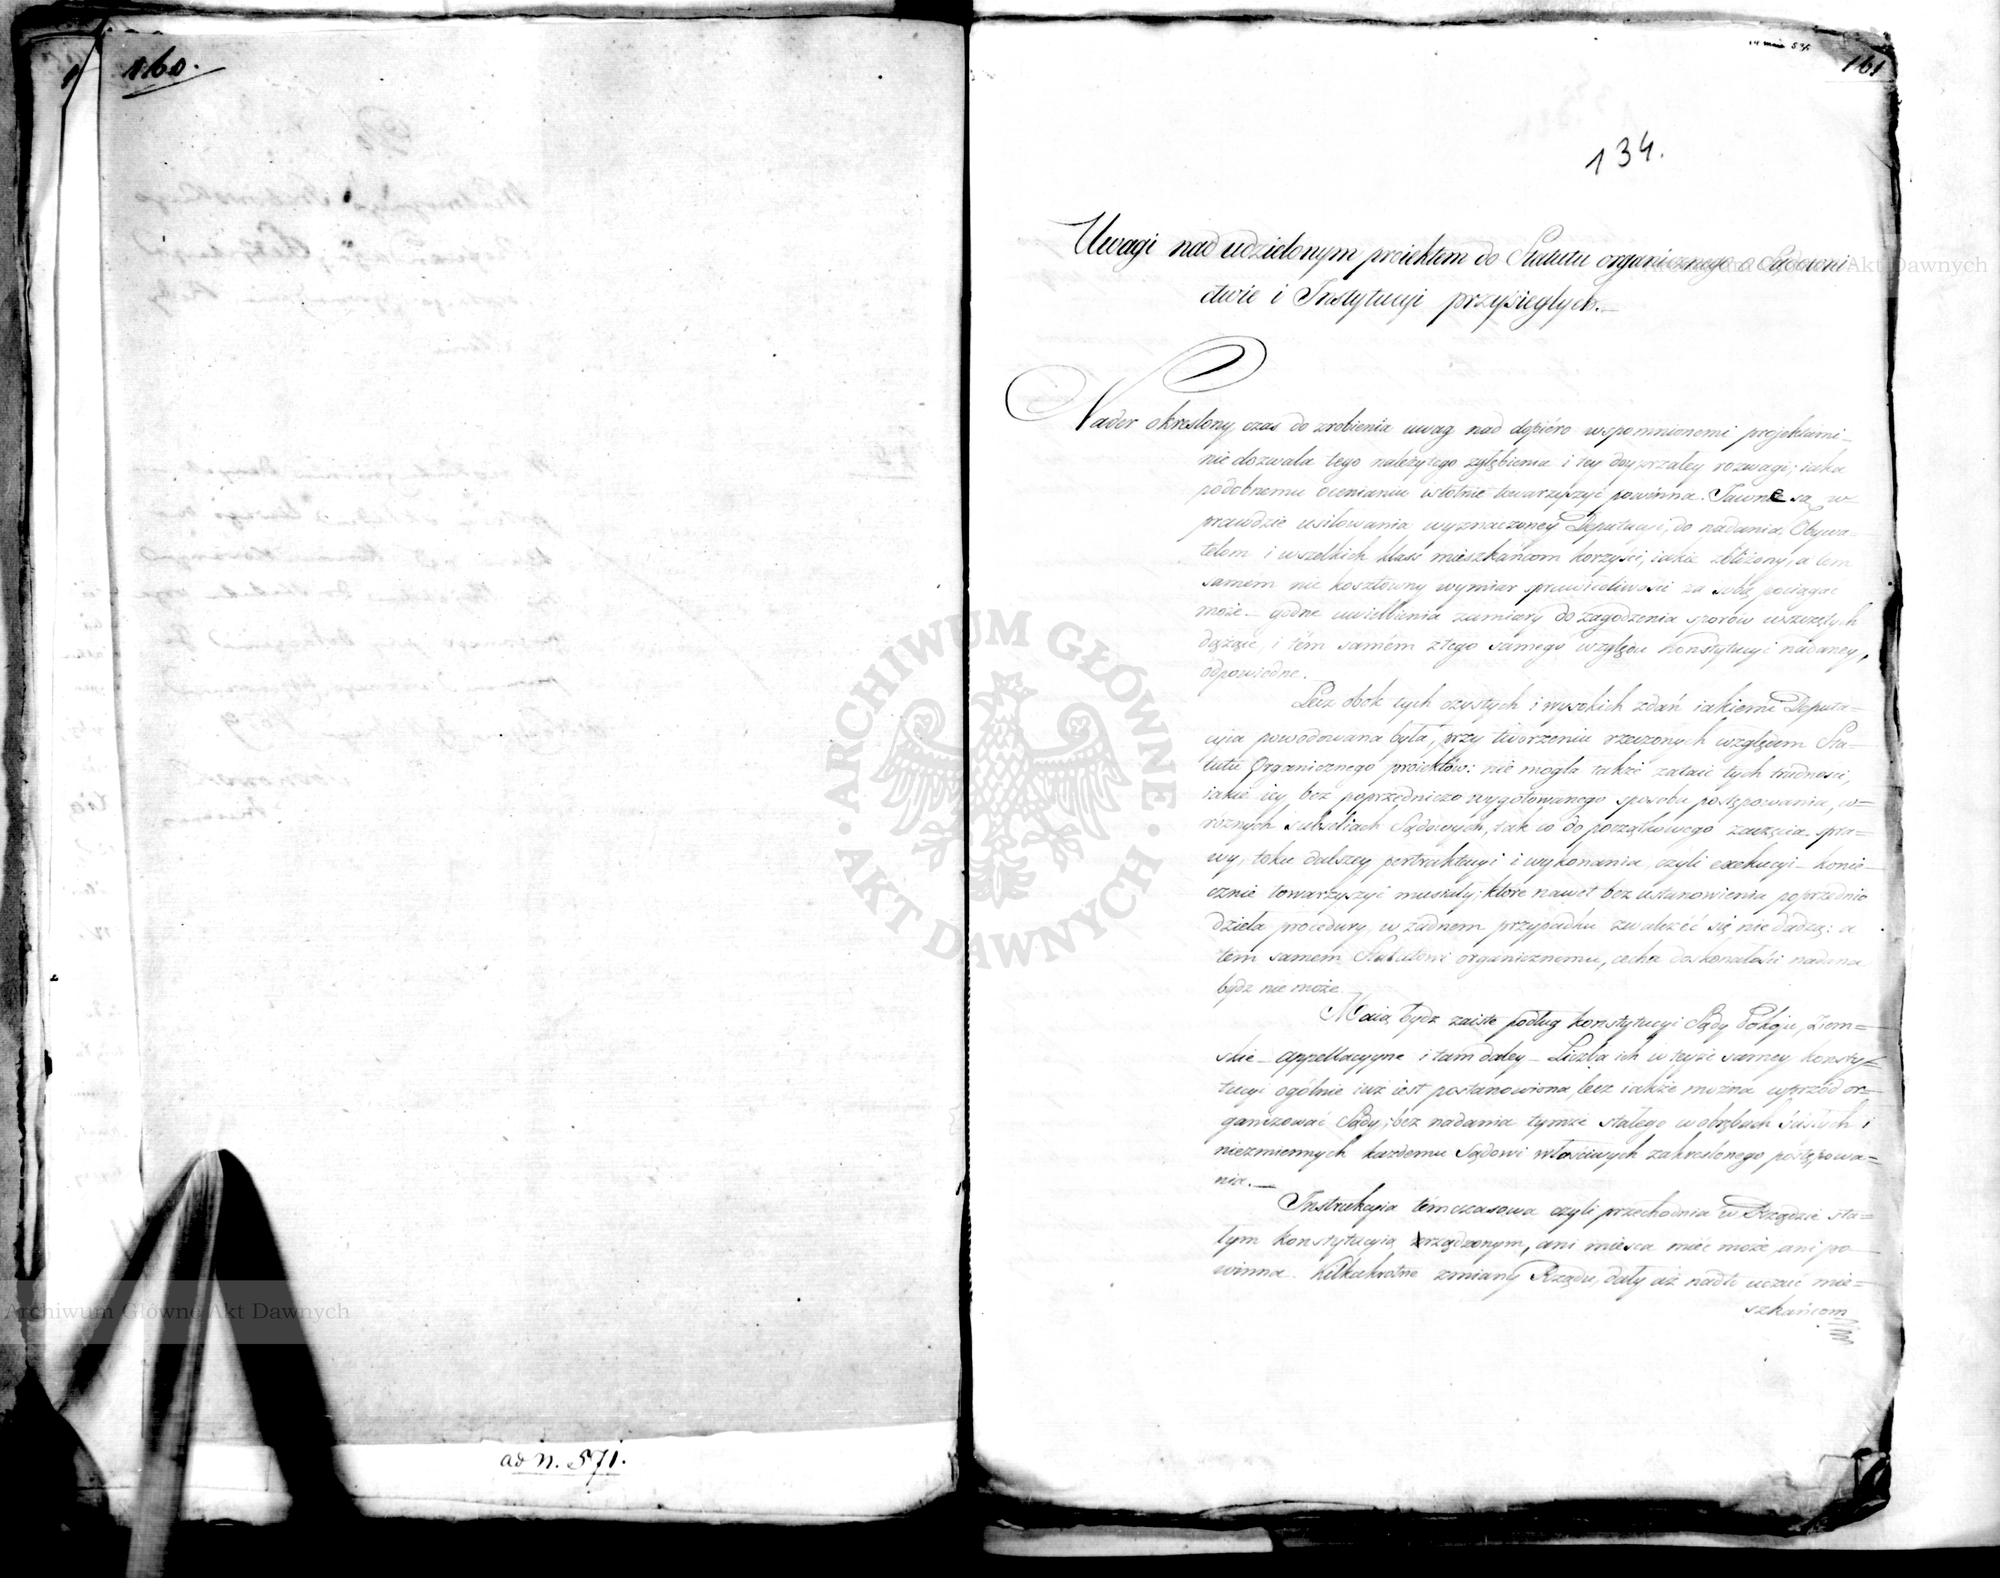 160.
ad n. 571.
161
134.
Uwagi nad udzielonym proiektem do Statutu organicznego o Sądowni
ctwie i Instytucyi przysięgłych.
Nader okreslony czas do zrobienia uwag nad dopióro wspomnionemi projektami
nie dozwala tego należytego zgłębienia i tey doyrzałey rozwagi; iaka
podobnemu ocenianiu istotnie towarzyszyć powinna. Jawne są w
prawdzie usiłowania wyznaczoney Deputacyi, do nadania Obywa-
telom i wszelkich klass mieszkańcom korzyści, iakie zbliżony, a tem
samém nie kosztowny wymiar sprawiedliwosci za sobą pociągać
może – godne uwielbienia zamiary do zagodzenia sporów wszczętych
dążące, i tém samém z tego samego względu konstytucyi nadaney,
odpowiedne.
Lecz obok tych czystych i wysokich zdań iakiemi Deputa-
cyia powodowana była, przy tworzeniu rzeczonych względem Sta-
tutu Organicznego proiektów: nie mogła także zataić tych trudnosci,
iakie iey bez poprzedniczo wygotowanego sposobu postępowania, w=
różnych subseliach Sądowych, tak co do początkowego zaczęcia spra-
wy, toku dalszey pertraktacyi i wykonania, czyli exekucyi – konie-
cznie towarzyszyć musiały; które nawet bez ustanowienia poprzednio
dzieła procedury, w żadnem przypadku zwalczéć się nie dadzą: a
tém samém Statutowi organicznemu, cecha doskonałości nadana
bydz nie może.
Maią bydz zaiste podług konstytucyi Sądy Pokoju, Ziem=
skie – appellacyyne i tam daley – Liczba ich w teyże samey konsty=
tucyi ogólnie iuż iest postanowiona, lecz iakże można wprzód or=
ganizować Sądy; bez nadania tymże stałego w obrębach ścisłych i
niezmiennych każdemu Sądowi właściwych zakreslonego postępowa=
nia. —
Instrukcyia témczasowa czyli przechodnia w Rządzie sta=
łym konstytucyią zrządzonym, ani mieysca mieć może ani po
winna. Kilkakrotne zmiany Rządu, dały aż nadto uczuć mie=
szkańcom
Archiwum Główne Akt Dawnych
ARCHIWUM GŁÓWNE · AKT DAWNYCH ·